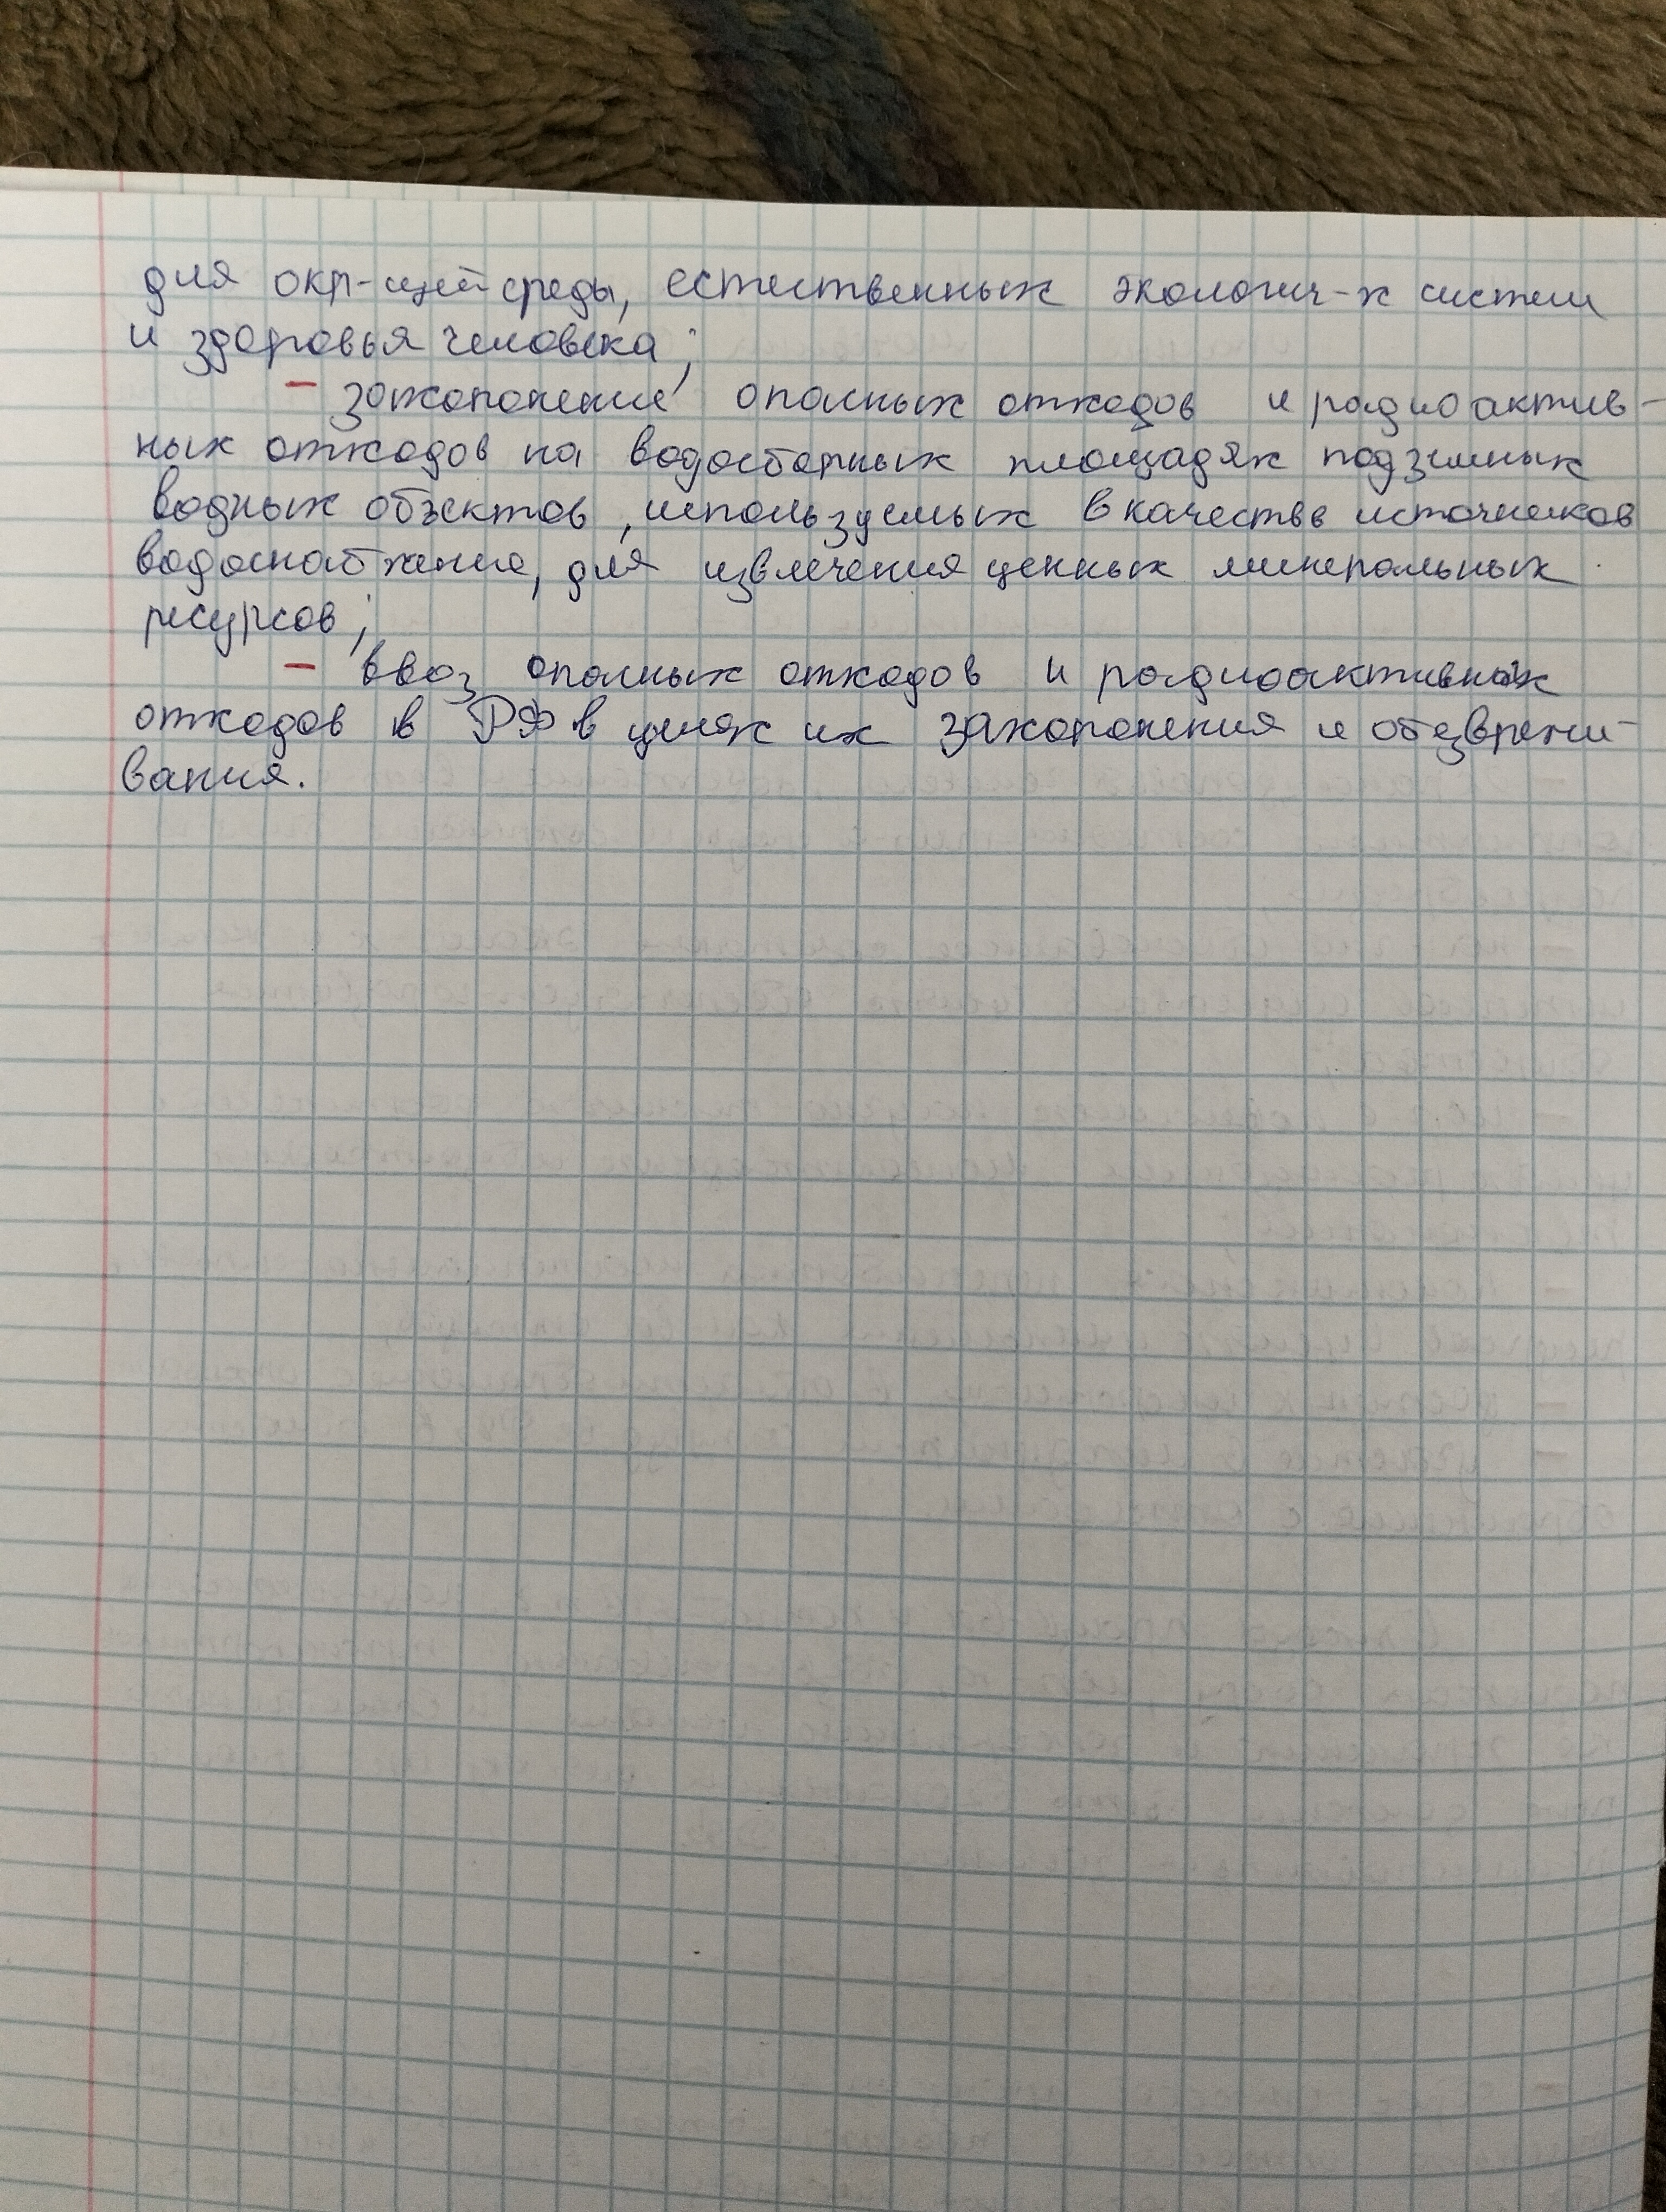 для окр-щей среды, естественных экологич-х систем
и здоровья человека;
- захоронение опасных отходов и радиоактив-
ных отходов на водосборных площадях подземных
водных объектов, используемых в качестве источников
водоснабжение, для извлечения ценных минеральных
ресурсов;
- ввоз опасных отходов и радиоактивных
отходов в РФ в целях их захоронения и обезврежи-
вания.